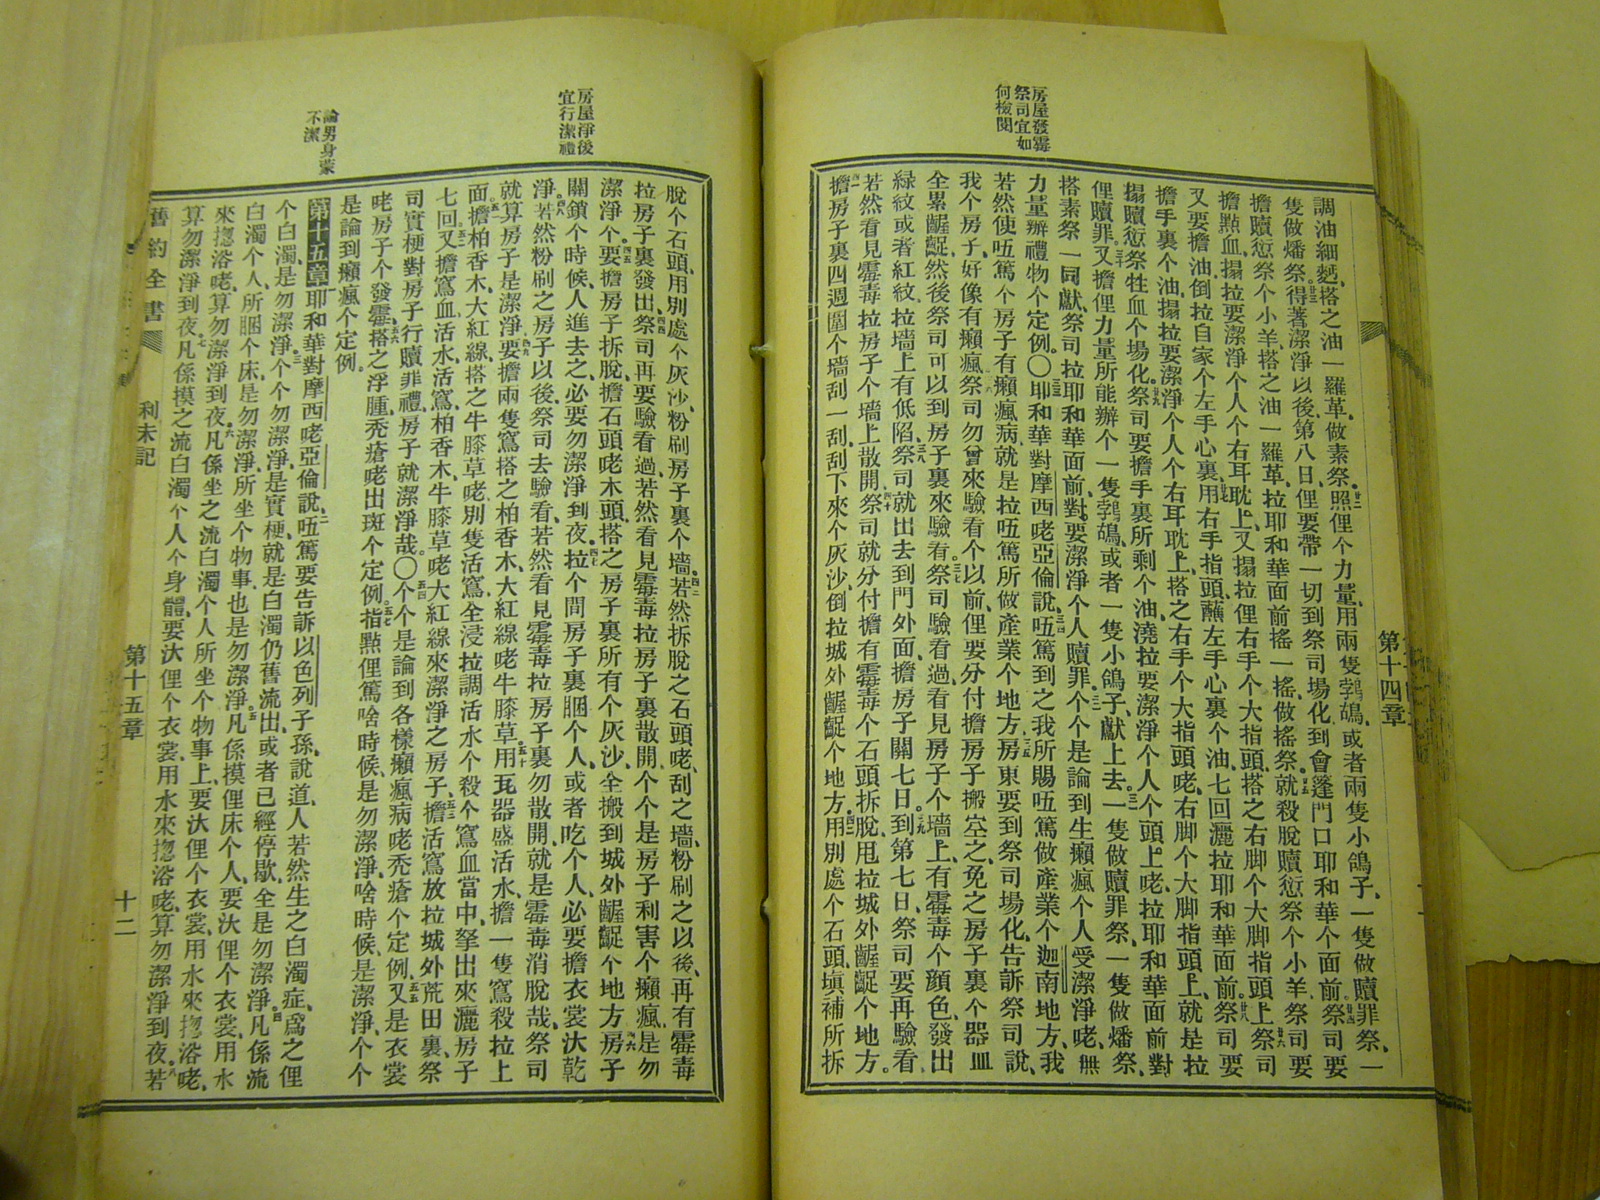 房屋發霉
祭司宜如
何檢閱
第十四章
調油細麪、搭之油一羅革、做素祭。廿二照俚个力量、用兩隻鹁鴣、或者兩隻小鴿子、一隻做贖罪祭、一
隻做燔祭。廿三得著潔淨以後、第八日、俚要帶一切到祭司場化、到會篷門口、耶和華个面前。廿四祭司要
擔贖愆祭个小羊、搭之油一羅革、拉耶和華面前搖一搖、做搖祭。廿五就殺脫贖愆祭个小羊、祭司要
擔點血、搨拉要潔淨个人个右耳朶上、又搨拉俚右手个大指頭、搭之右脚个大脚指頭上。廿六祭司
又要擔油、倒拉自家个左手心裏。廿七用右手指頭、蘸左手心裏个油、七回灑拉耶和華面前。廿八祭司要
擔手裏个油、搨拉要潔淨个人个右耳朶上、搭之右手个大指頭咾、右脚个大脚指頭上、就是拉
搨贖愆祭牲血个場化。廿九祭司要擔手裏所剩个油、澆拉要潔淨个人个頭上咾、拉耶和華面前對
俚贖罪。三十又擔俚力量所能辦个一隻鹁鴣、或者一隻小鴿子、獻上去。三一一隻做贖罪祭、一隻做燔祭、
搭素祭一同獻、祭司拉耶和華面前、對要潔淨个人贖罪。三二个个是論到生癩瘋个人、受潔淨咾、無
力量辦禮物个定例。〇三三耶和華對摩西咾亞倫說、三四㑚篤到之我所賜㑚篤做產業个迦南地方、我
若然使㑚篤个房子有癩瘋病、就是拉㑚篤所做產業个地方。三五房東要到祭司場化、告訴祭司說、
我个房子、好像有癩瘋。三六祭司勿曾來驗看个以前、俚要分付擔房子搬空之、免之房子裏个器皿
全累齷齪、然後祭司可以到房子裏來驗看。三七祭司驗看過、看見房子个墻上、有霉毒个顏色、發出
綠紋或者紅紋、拉墻上有低陷。三八祭司就出去到門外面、擔房子關七日。三九到第七日、祭司要再驗看、
若然看見霉毒、拉房子个墻上散開。四十祭司就分付擔有霉毒个石頭拆脫、甩拉城外齷齪个地方。
四一擔房子裏四週圍个墻刮一刮、刮下來个灰沙、倒拉城外齷齪个地方。四二用別處个石頭、塡補所拆
房屋淨後
宜行潔禮
論男身蒙
不潔
脫个石頭、用別處个灰沙、粉刷房子裏个墻。四三若然拆脫之石頭咾、刮之墻、粉刷之以後、再有霉毒
拉房子裏發出。四四祭司再要驗看過、若然看見霉毒拉房子裏散開、个个是房子利害个癩瘋、是勿
潔淨个。四五要擔房子拆脫、擔石頭咾木頭、搭之房子裏所有个灰沙、全搬到城外齷齪个地方。四六房子
關鎖个時候、人進去之、必要勿潔淨到夜。四七拉个間房子裏睏个人、或者吃个人、必要擔衣裳汏乾
淨。四八若然粉刷之房子以後、祭司去驗看、若然看見霉毒拉房子裏勿散開、就是霉毒消脫哉、祭司
就算房子是潔淨。四九要擔兩隻窵、搭之柏香木、大紅線咾牛膝草。五十用瓦器盛活水、擔一隻窵殺拉上
面。五一擔柏香木大紅線、搭之牛膝草咾、別隻活窵、全浸拉調活水个殺个窵血當中、拏出來灑房子
七回。五二又擔窵血、活水、活窵、柏香木、牛膝草咾大紅線、來潔淨之房子。五三擔活窵放拉城外荒田裏、祭
司實梗對房子行贖罪禮、房子就潔淨哉。〇五四个个是論到各樣癩瘋病咾禿瘡个定例。五五又是衣裳
咾房子个發霉。五六搭之浮腫、禿瘡咾出斑个定例。五七指點俚篤、啥時候是勿潔淨、啥時候是潔淨、个个
是論到癩瘋个定例。
第十五章 一耶和華對摩西咾亞倫說、二㑚篤要告訴以色列子孫說道、人若然生之白濁症、爲之俚
个白濁、是勿潔淨个。三个个勿潔淨、是實梗、就是白濁仍舊流出、或者已經停歇、全是勿潔淨。四凡係流
白濁个人、所睏个床、是勿潔淨、所坐个物事、也是勿潔淨。五凡係摸俚床个人、要汏俚个衣裳、用水
來㧾浴咾、算勿潔淨到夜。六凡係坐之流白濁个人所坐个物事上、要汏俚个衣裳、用水來㧾浴咾、
算勿潔淨到夜。七凡係摸之流白濁个人个身體、要汏俚个衣裳、用水來㧾浴咾、算勿潔淨到夜。八若
舊約全書
利未記
第十五章
十二